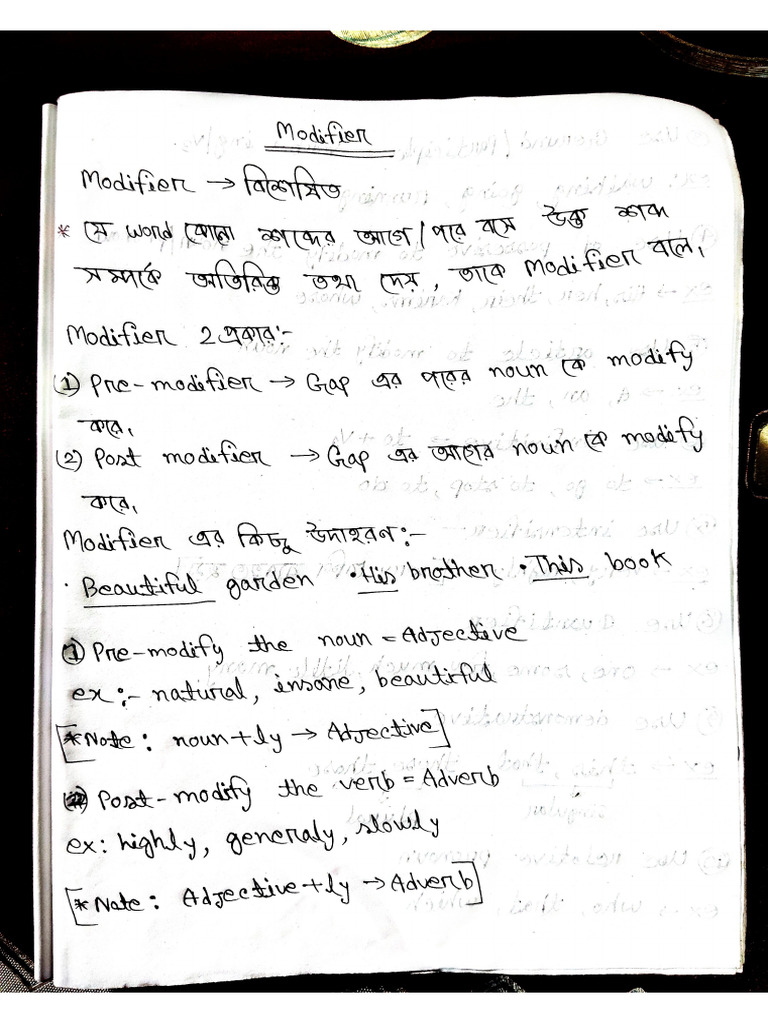 Modifier
Modifier → বিশেষিত
* যে word কোনো শব্দের আগে/পরে বসে উক্ত শব্দ
সম্পর্কে অতিরিক্ত তথ্য দেয়, তাকে Modifier বলে।
Modifier 2 প্রকার:-
(1) Pre-modifier → Gap এর পরের noun কে modify
করে,
(2) Post modifier → Gap এর আগের noun কে modify
করে,
Modifier এর কিছু উদাহরন:-
· Beautiful garden · His brother · This book
① Pre-modify the noun = Adjective
ex:- natural, insane, beautiful
[*Note: noun+ly → Adjective]
Post-modify the verb = Adverb
ex: highly, generaly, slowly
[*Note: Adjective+ly → Adverb]